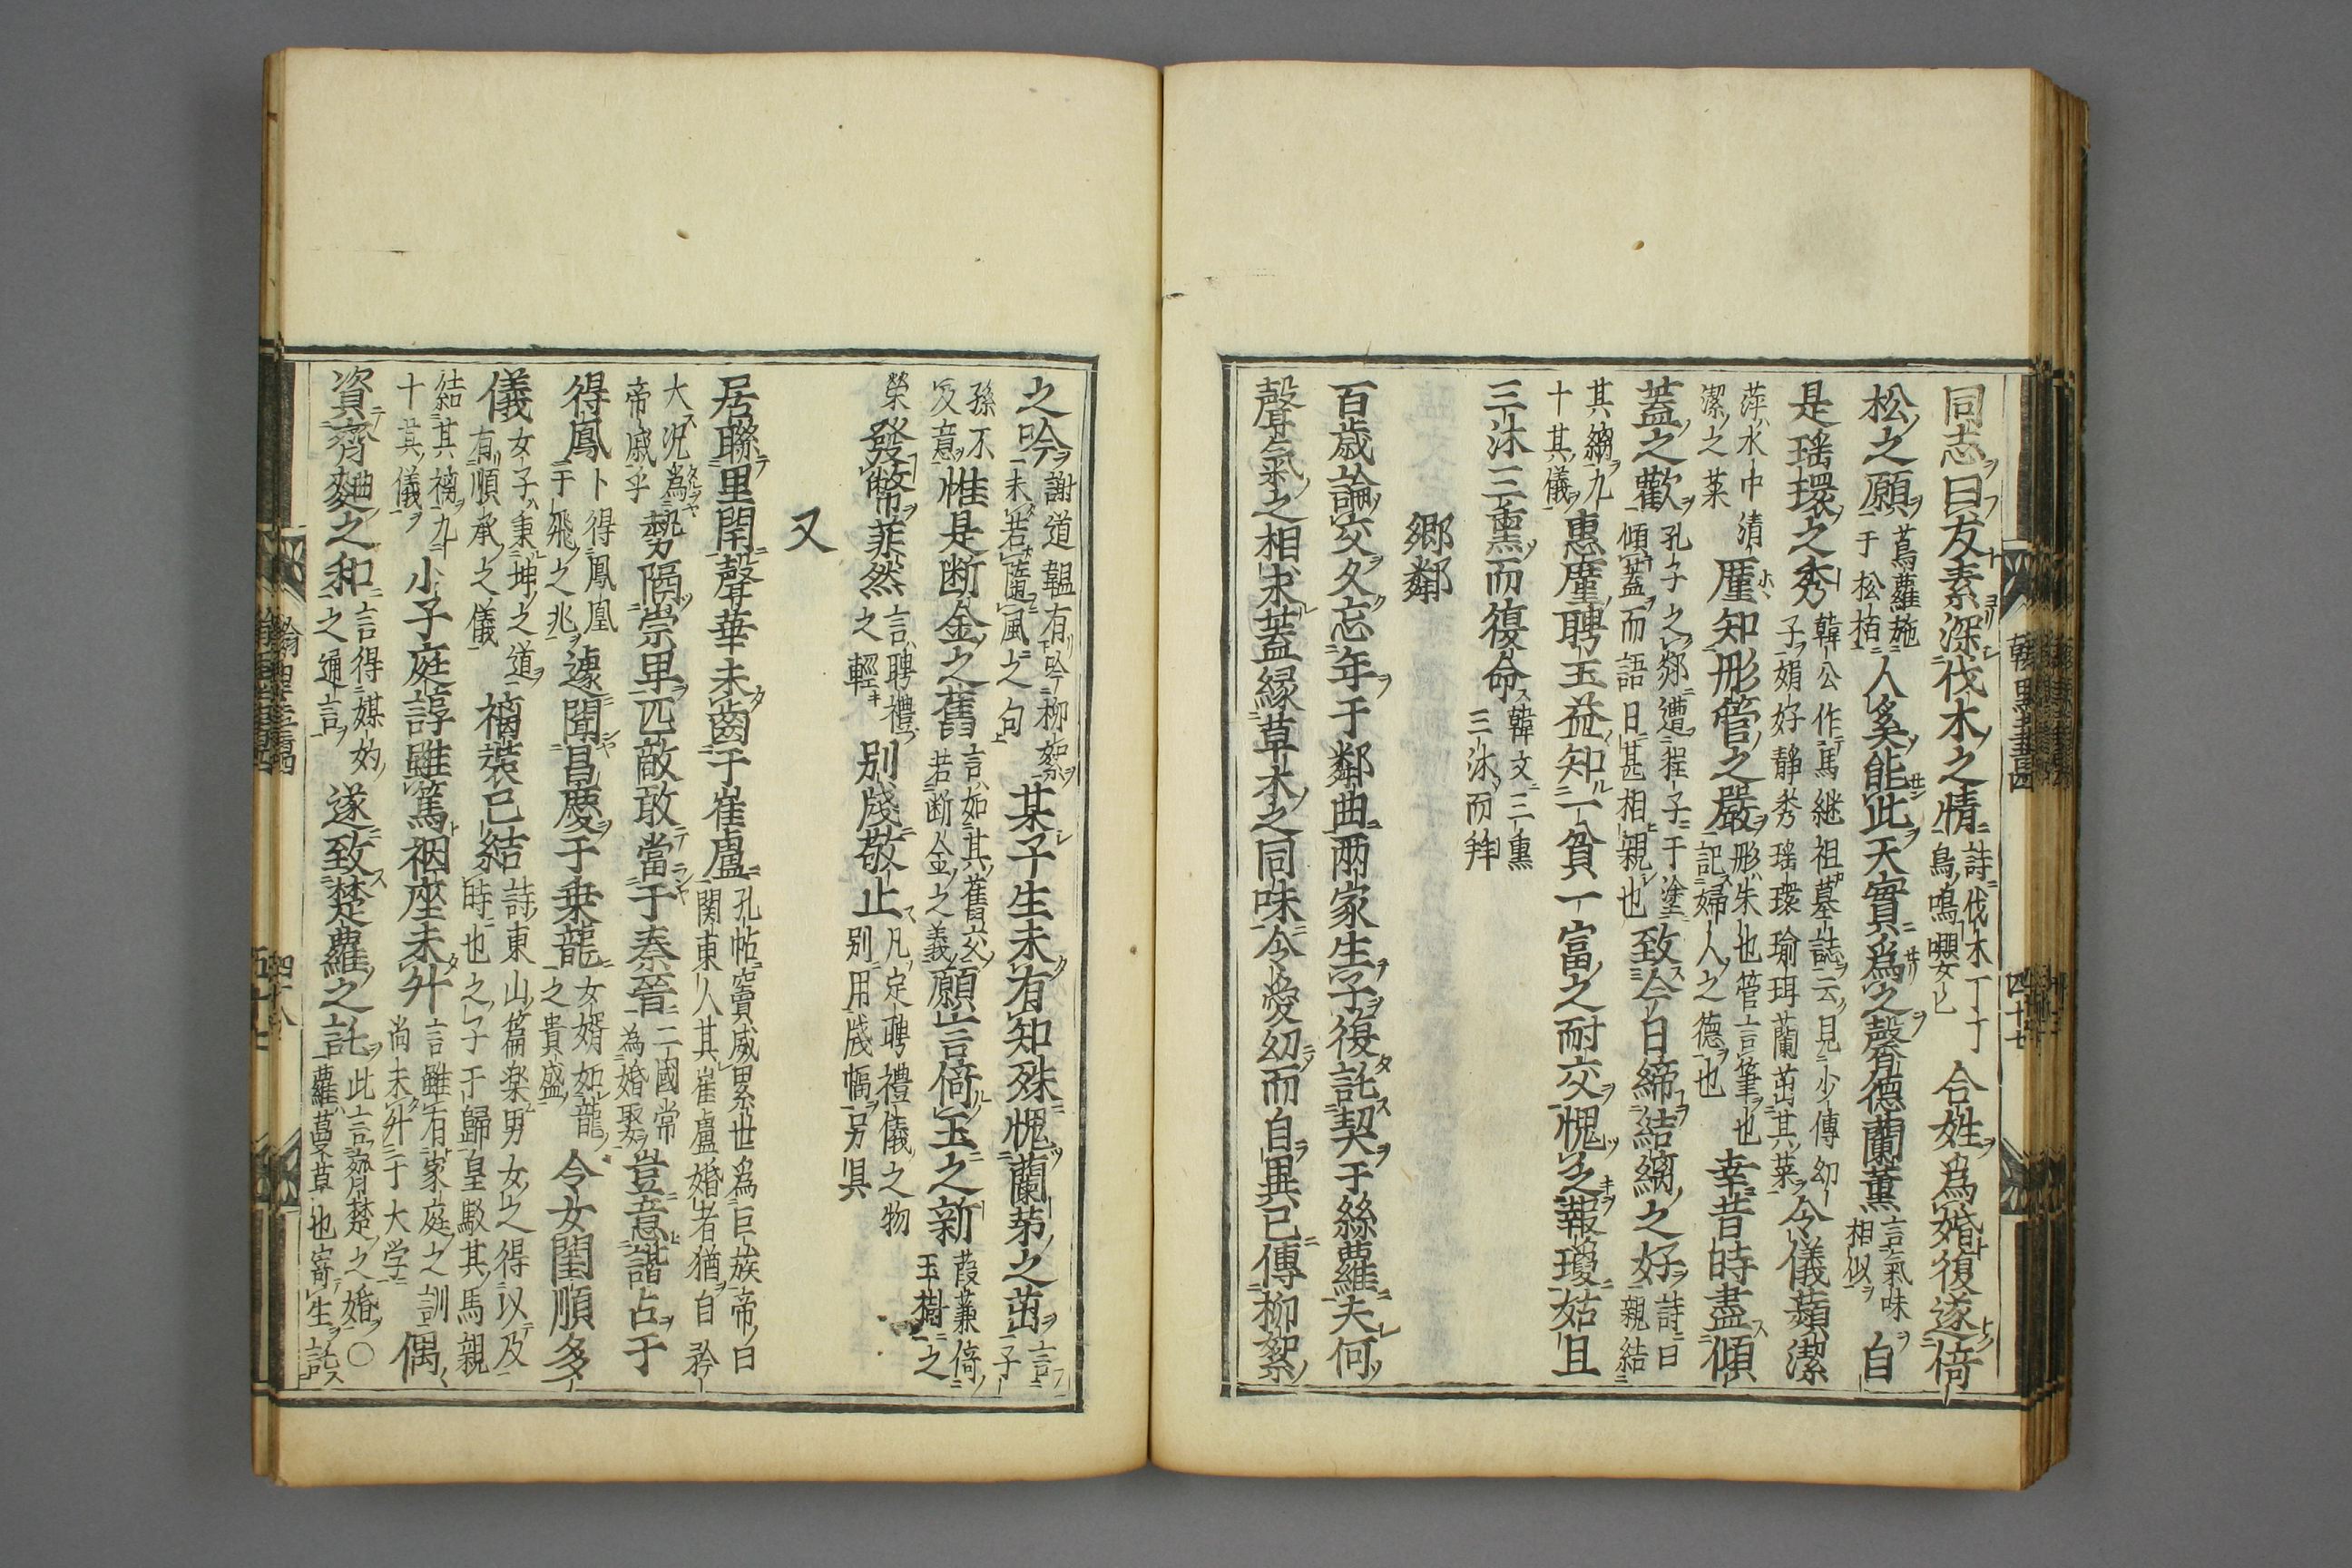 同志曰友素深伐木之情詩伐木丁丁鳥鳴嚶々合姓爲婚復遂倚
松之願蔦蘿施于松栢人奚能此天實爲之馨德蘭薰言氣味相似自
是瑶環之秀韓公作馬継祖墓誌云見少傳幼子娟好靜秀瑶環瑜珥蘭茁其菜今儀蘋潔
萍水中清潔之菜厪知彤管之嚴彤朱也管言筆也記婦人之德也幸昔時盡傾
蓋之歡孔子之郯遭程子于塗傾蓋而語日甚相親也致今日締結縭之好詩曰親結
其縭九十其儀惠厪聘玉益知一貧一富之耐交愧之報瓊姑且
三沐三熏而復命韓文三熏三沐而拜
郷鄰
百歳論交久忘年于鄰曲两家生子復託契于絲蘿夫何
聲氣之相求葢縁草木之同味令愛幼而自異已傳柳絮
之吟謝道韞有吟柳絮未若隨風之句某子生未有知殊愧蘭茅之茁言子
孫不及意惟是断金之舊言如其舊交若断金之義願言倚玉之新葭蒹倚玉樹之
榮發幣菲然言聘禮之輕别牋敬止凡定聘禮儀之物别用牋幅另具
又
居聯里閈聲華未齒于崔盧孔帖竇威累世爲巨族帝曰関東人其崔盧婚者猶自矜
大况為帝戚乎勢隔崇卑匹敵敢當于秦晉二國常為婚娶豈意諧占于
得鳳卜得鳳凰于飛之兆遽聞昌慶于乗龍女婿如龍之貴盛令女閨順多
儀女子秉坤之道有順承之儀褵裝已結詩東山篇楽男女之得以及時也之子于歸皇駁其馬親
結其褵九十其儀小子庭諄雖篤裀座未升言雖有家庭之訓尚未升于大学偶
資齊麹之和言得媒妁之通言遂致楚蘿之託此言齊楚之婚〇蘿蔓草也寄生託